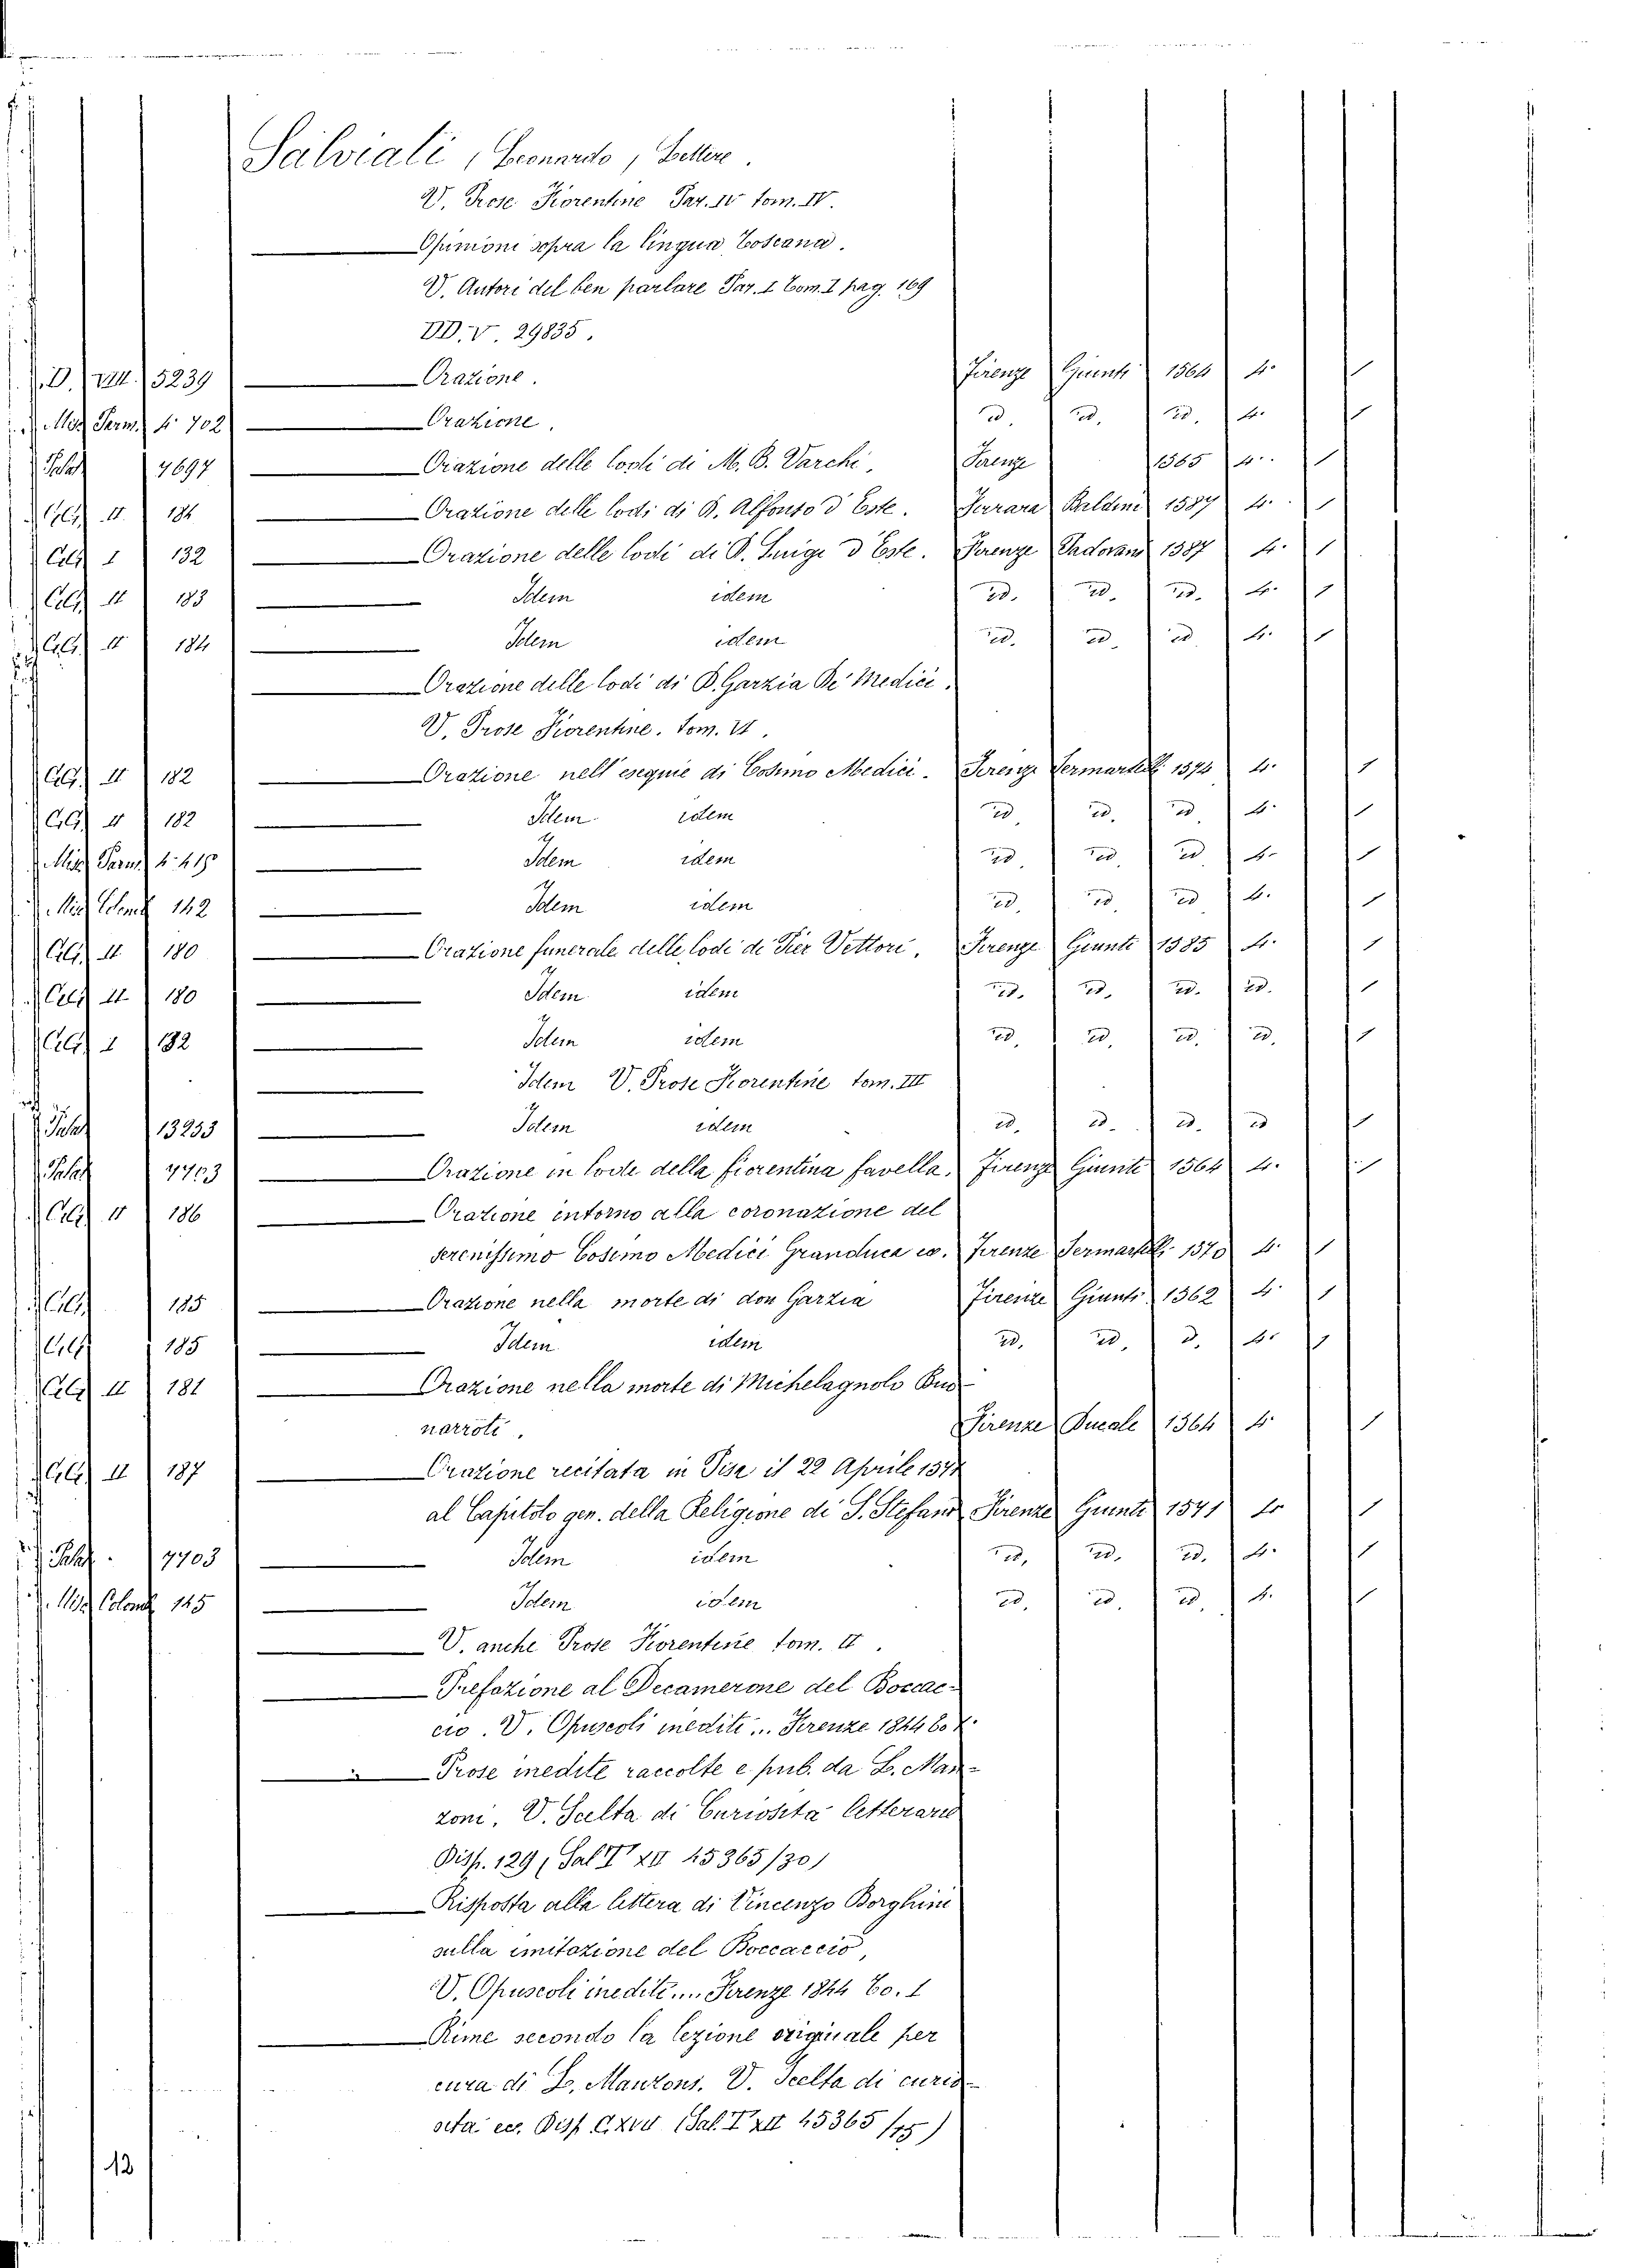 Salviati, Leonardo, Lettere.
V. Prose Fiorentine Par. IV tom. IV.
Opinioni sopra la lingua Toscana.
V. Autori del ben parlare Par. I Tom. I pag. 169
DD. V. 29835.
D. VIII. 5239 Orazione. Firenze Giunti 1564 4. 1
Misc Perm. 4. 702 Orazione. id. id. id. 4. 1
Palat 7697 Orazione delle lodi di M. B. Varchi. Firenze 1565 4. 1
II. 184 Orazione delle lodi di D. Alfonso d'Este. Ferrara Baldini 1587 4. 1
I 132 Orazione delle lodi di D. Luigi d'Este. Firenze Padovani 1587 4. 1
II 183 Idem idem id. id. id. 4. 1
II 184 Idem idem id. id. id. 4. 1
Orazione delle lodi di D. Garzia De' Medici.
V. Prose Fiorentine. Tom. VI.
II 182 Orazione nell'esequie di Cosimo Medici. Firenze Sermartelli 1574 4. 1
II 182 Idem idem id. id. id. 4. 1
Misc Parm. 4. 419 Idem idem id. id. id. 4. 1
Misc Colomb 142 Idem idem id. id. id. 4. 1
II 180 Orazione funerale delle lodi di Pier Vettori. Firenze Giunti 1585 4. 1
II 180 Idem idem id. id. id. id. 1
I 132 Idem idem id. id. id. id. 1
Idem V. Prose Fiorentine tom. III
Palat 13253 Idem idem id. id. id. id 1
Palat 7703 Orazione in lode della fiorentina favella. Firenze Giunti 1564 4. 1
II 186 Orazione intorno alla coronazione del
serenissimo Cosimo Medici Granduca ec. Firenze Sermartelli 1570 4. 1
185 Orazione nella morte di don Garzia Firenze Giunti 1562 4. 1
185 Idem idem id. id. d. 4. 1
II 181 Orazione nella morte di Michelagnolo Buo-
narroti. Firenze Ducale 1564 4. 1
II 187 Orazione recitata in Pisa il 22 Aprile 1571
al Capitolo gen. della Religione di S. Stefano Firenze Giunti 1571 4. 1
Palat. 7703 Idem idem id. id. id. 4. 1
Misc Colomb 145 Idem idem id. id. id. 4. 1
V. anche Prose Fiorentine tom. II.
Prefazione al Decamerone del Boccac-
cio. V. Opuscoli inediti... Firenze 1844 to I.
Prose inedite raccolte e pub. da L. Man-
zoni. V. Scelta di Curiosità letterarie
Disp. 129 (Sal. I XII 45365/30)
Risposta alla lettera di Vincenzo Borghini
sulla imitazione del Boccaccio,
V. Opuscoli inediti.... Firenze 1844 to. I
Rime secondo la lezione originale per
cura di L. Manzoni. V. Scelta di curio-
sità ec. Disp. (Sal. I XII 45365/15)
12